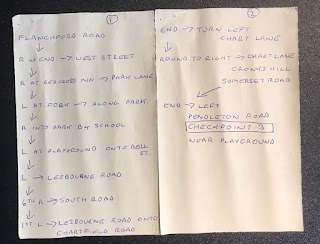 1
FLANCHFORD ROAD
R at END → WEST STREET
R AT RED CROSS INN → PARK LANE
L AT FORK → ALONG PARK.
R INTO PARK BY SCHOOL
L AT PLAYGROUND ONTO BELL
ST.
L → LESBOURNE ROAD
6TH R → SOUTH ROAD
1ST L → LESBOURNE ROAD ONTO
CHARTFIELD ROAD
2
END → TURN LEFT
CHART LANE
ROUND TO RIGHT → CHART LANE
CRONKS HILL
SOMERSET ROAD
END → LEFT
PENDLETON ROAD
CHECKPOINT 3
NEAR PLAYGROUND